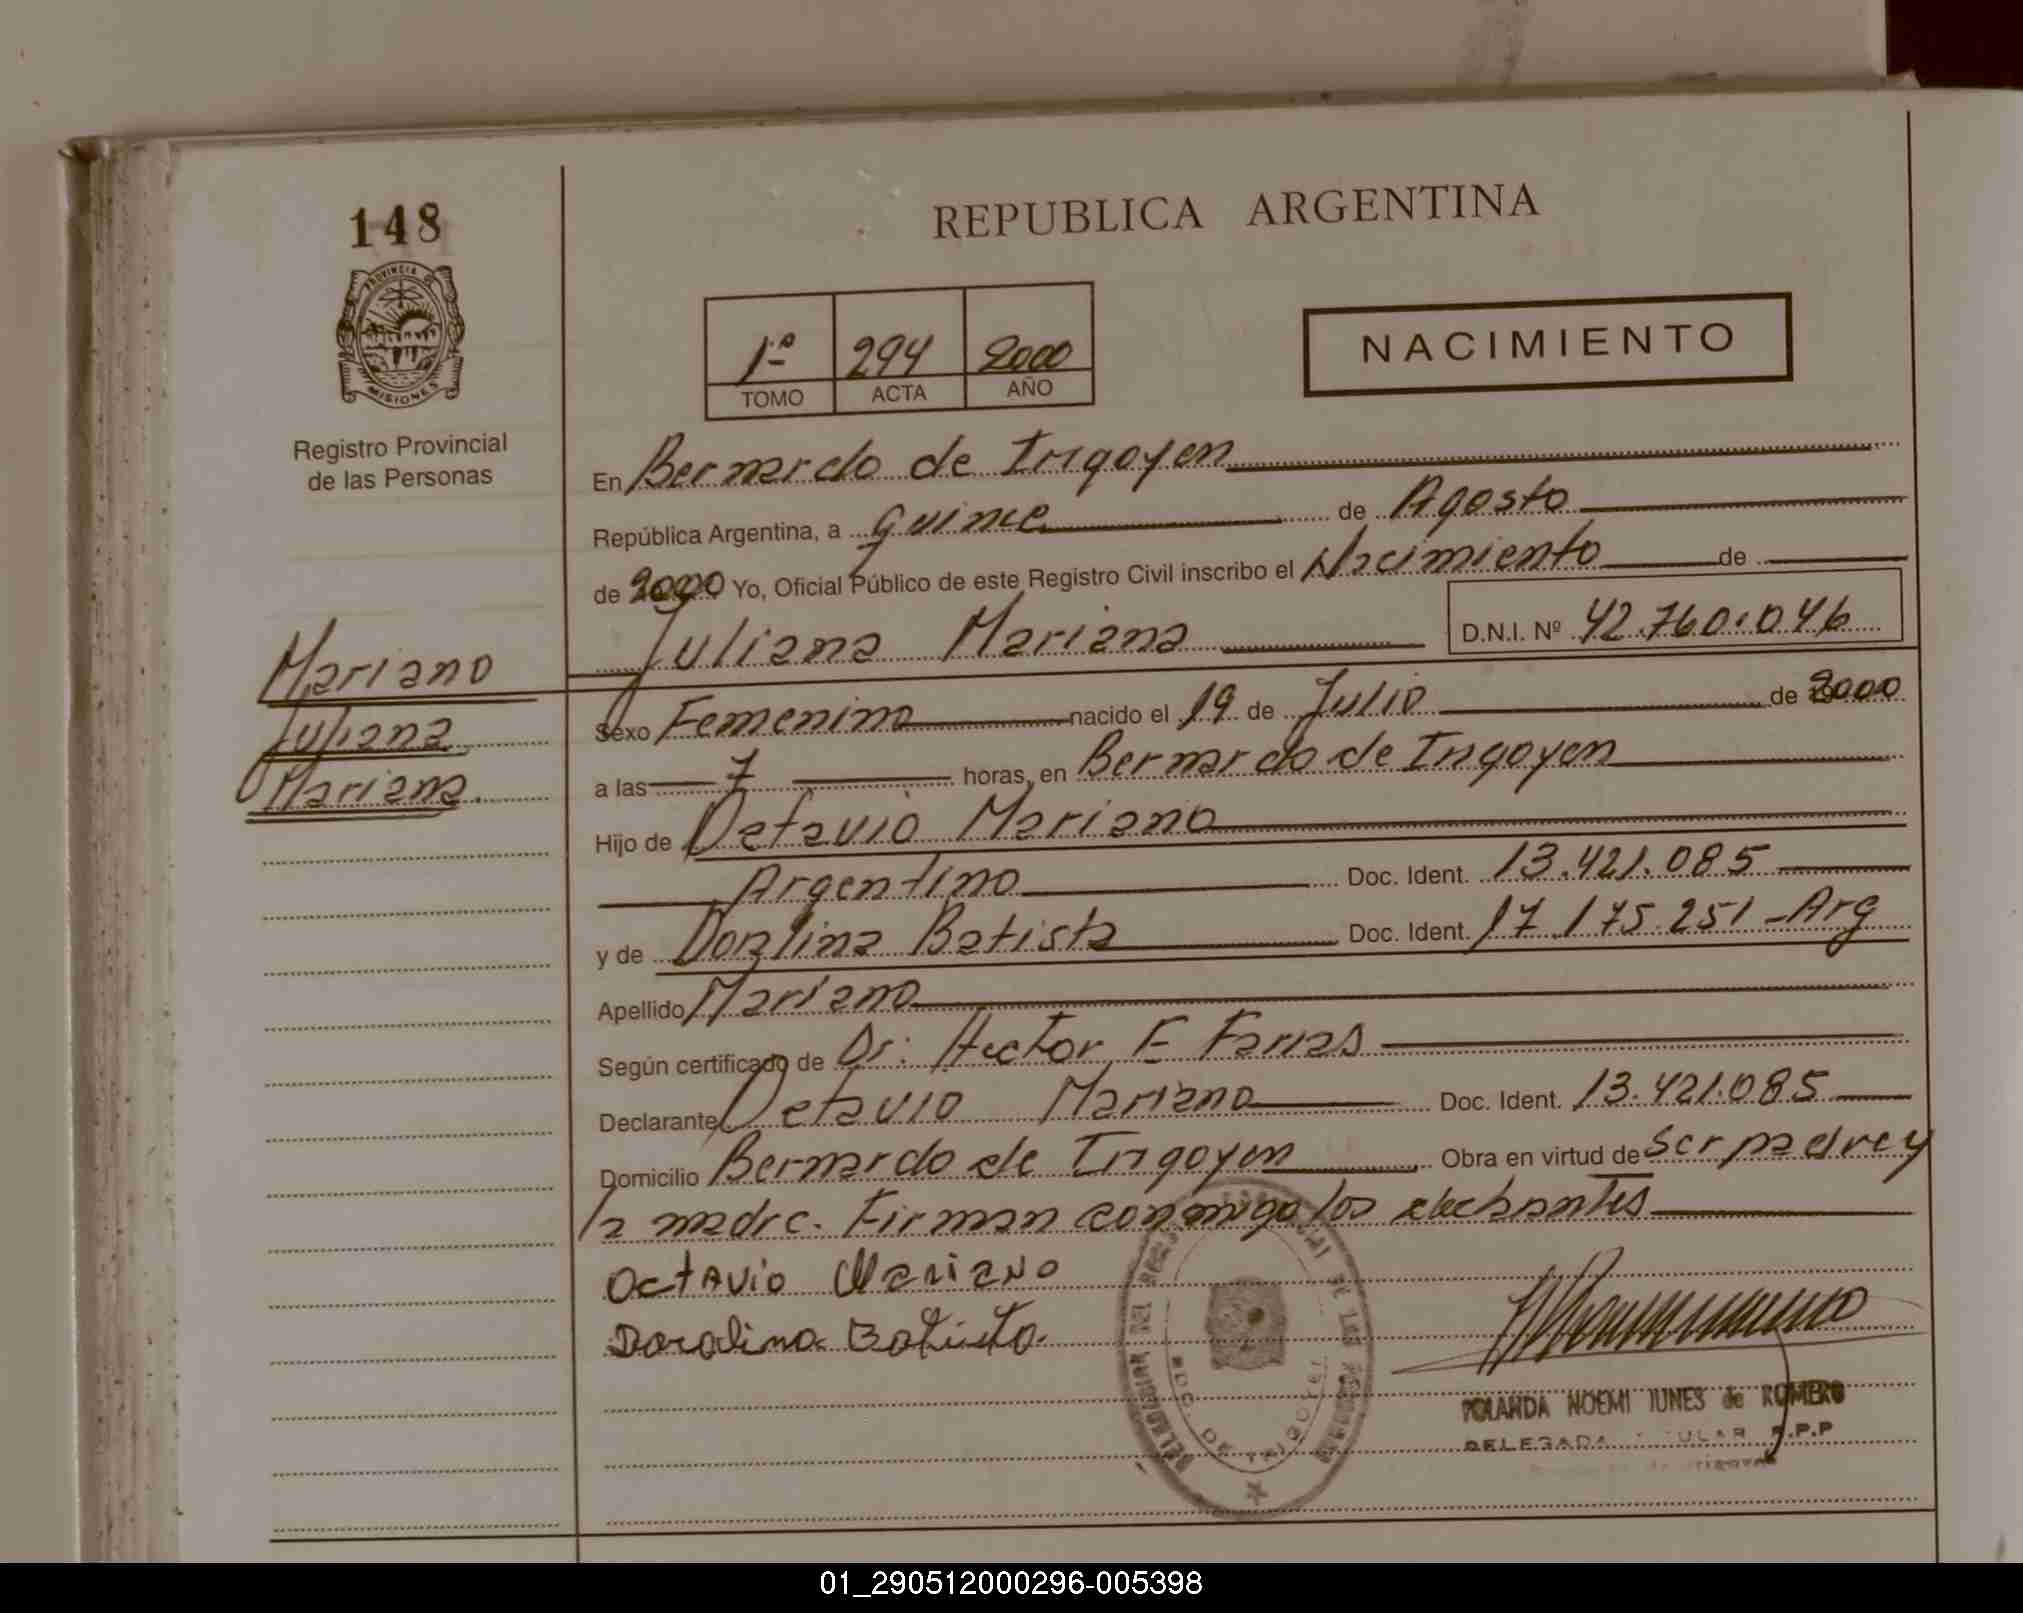 148
PROVINCIA
MISIONES
Registro Provincial
de las Personas
Mariano
Juliana
Mariana.
REPUBLICA ARGENTINA
1º 294 2000
TOMO ACTA AÑO
NACIMIENTO
En Bernardo de Irigoyen
República Argentina, a quince de Agosto
de 2000 Yo, Oficial Público de este Registro Civil inscribo el Nacimiento de
Juliana Mariana D.N.I. Nº 42.760.046
Sexo Femenino nacido el 19 de Julio de 2000
a las 7 horas, en Bernardo de Irigoyen
Hijo de Octavio Mariano
Argentino Doc. Ident. 13.421.085
y de Doralina Batista Doc. Ident. 17.175.251 - Arg
Apellido Mariano
Según certificado de Dr. Hector E Farias
Declarante Octavio Mariano Doc. Ident. 13.421.085
Domicilio Bernardo de Irigoyen Obra en virtud de ser padre y
la madre. Firman conmigo los declarantes
Octavio Mariano
Doralina Batista
YOLANDA NOEMI IUNES de ROMERO
DELEGADA TITULAR R.P.P
BDO. DE IRIGOYEN
01_290512000296-005398